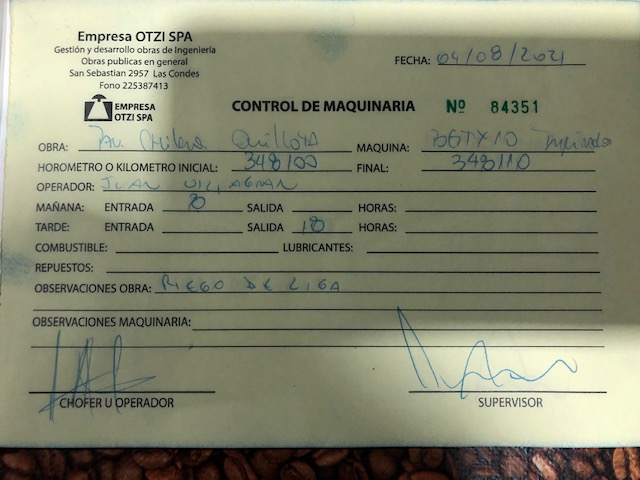 Empresa OTZI SPA
Gestión y desarrollo obras de Ingeniería
Obras publicas en general
San Sebastian 2957 Las Condes
Fono 225387413
FECHA: 09/08/2021
EMPRESA
OTZI SPA
CONTROL DE MAQUINARIA Nº 84351
OBRA: Quillota MAQUINA:
HOROMETRO O KILOMETRO INICIAL: 348100 FINAL: 348110
OPERADOR: JUAN
MAÑANA: ENTRADA 8 SALIDA HORAS:
TARDE: ENTRADA SALIDA 18 HORAS:
COMBUSTIBLE: LUBRICANTES:
REPUESTOS:
OBSERVACIONES OBRA: RIEGO DE LIGA
OBSERVACIONES MAQUINARIA:
CHOFER U OPERADOR SUPERVISOR